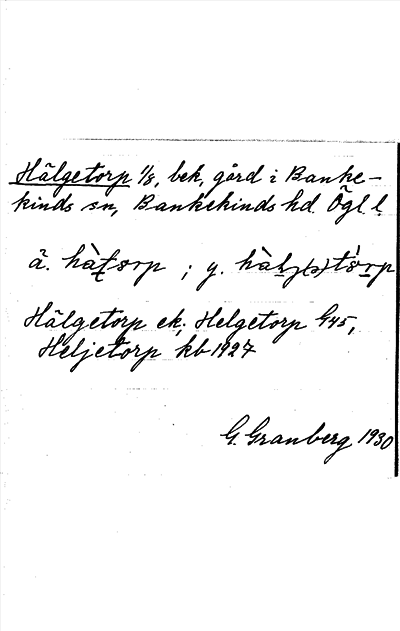 Hälgetorp 1/8, bek, gård i Banke-
kinds sn, Bankekinds hd. Ögl. l.
ä. hàtɷrp ; y. hàlj(ə)tɷrp
Hälgetorp ek; Helgetorp G45,
Heljetorp kb 1927
G. Granberg 1930